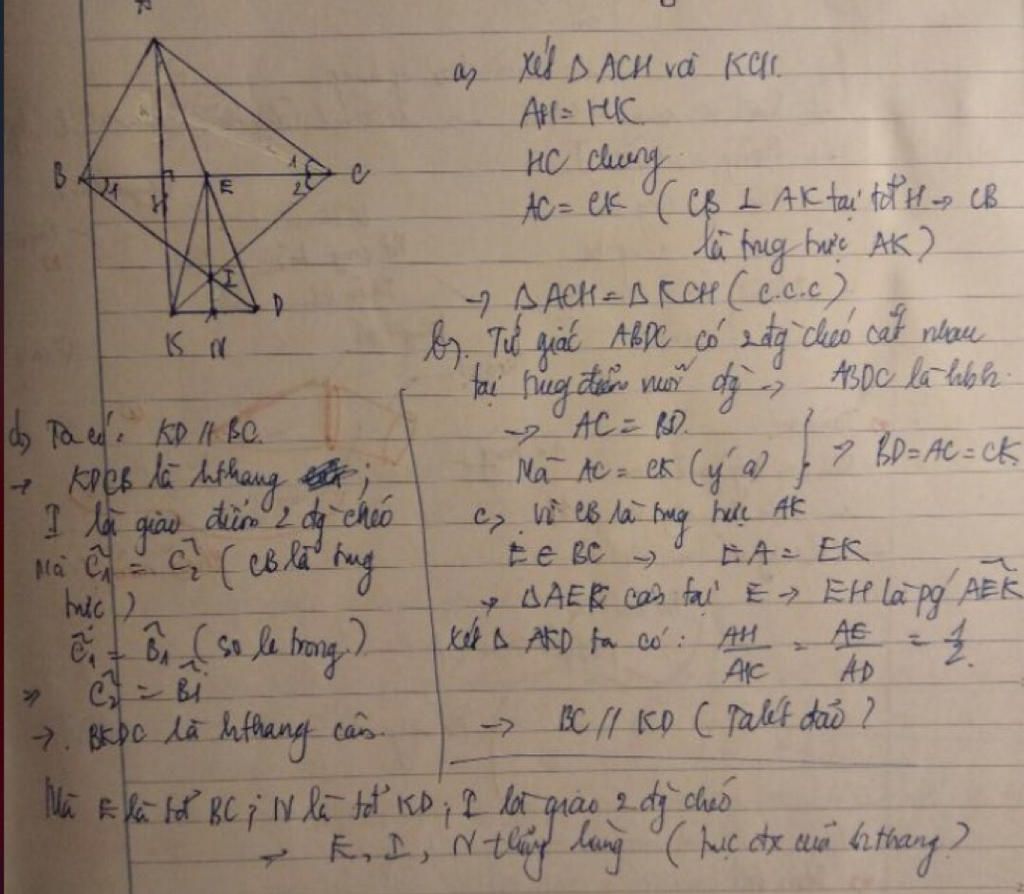 A
B
C
H
E
I
K
N
D
1
1
2
a) Xét Δ ACH và KCH.
AH = HK
HC chung
AC = CK ( CB ⊥ AK tại tđ H → CB
là trug trực AK )
→ Δ ACH = Δ KCH ( c.c.c )
b). Tứ giác ABDC có 2 đg chéo cắt nhau
tại trug điểm mỗi đg → ABDC là hbh.
→ AC = BD.
Mà AC = CK ( ý a ) } ⇒ BD = AC = CK
c, Vì CB là trug trực AK
E ∈ BC → EA = EK
→ Δ AEK cân tại E → EH là pg AEK
Xét Δ AKD ta có : AH/AK = AE/AD = 1/2.
→ BC // KD ( Talet đảo )
d, Ta có : KD // BC.
→ KDCB là hthang ;
I là giao điểm 2 đg chéo
Mà Ĉ1 = Ĉ2 ( CB là trug
trực )
Ĉ1 = B̂1 ( so le trong )
⇒ Ĉ2 = B̂1
→ . BKDC là hthang cân.
Mà E là tđ BC ; N là tđ KD ; I là giao 2 đg chéo
→ E, I, N thẳng hàng ( trục đx của hthang )